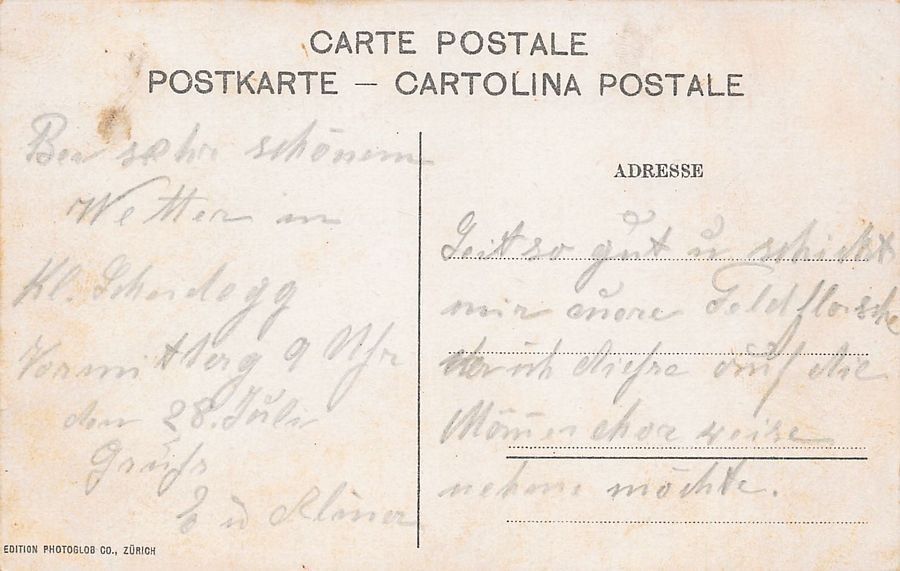 CARTE POSTALE
POSTKARTE — CARTOLINA POSTALE
Bei sehr schönem
Wetter in
Kl. Scheidegg
Vormittag 9 Uhr
den 28. Juli
Gruss
E u
ADRESSE
Seit so gut u schickt
mir euere Feldflasche
ich diese auf die
Männerchor reise
nehmen möchte.
EDITION PHOTOGLOB CO., ZÜRICH